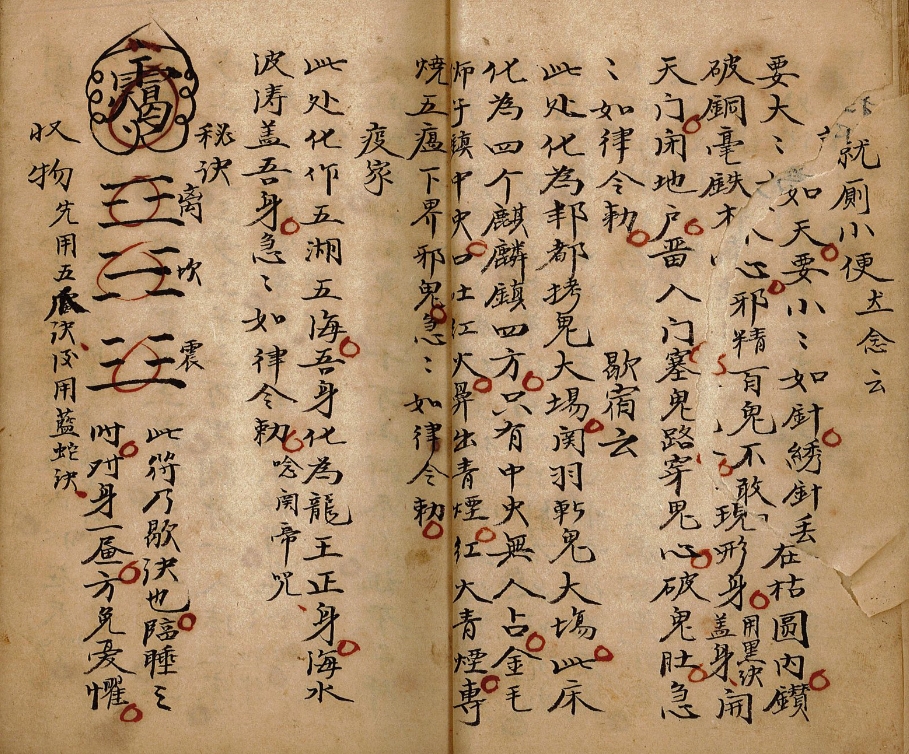 就厠小便 去念云
要大〻 如天要小〻如針綉針丢在枯圆内鑚
破銅毫鉄 心邪精百鬼不敢現形身 用黑决盖身 開
天门闭地户 畨入门塞鬼路穿鬼心破鬼肚急
〻如律令勅 歇宿云
此处化為邦都拷鬼大場関羽斬鬼大塲此床
化為四个麒麟鎮四方只有中央無人占金毛
师子鎮中央口吐红火鼻出青煙红火青煙專
燒五瘟下界邪鬼急〻如律令勅
疫家
此处化作五湖五海吾身化為龍王正身海水
波涛盖吾身急〻如律令勅 唸関帝咒
秘诀
离
坎
震
此符乃歇决也臨睡之
时对身一屉方免憂懼
収物 先用五 决後用藍蛇决